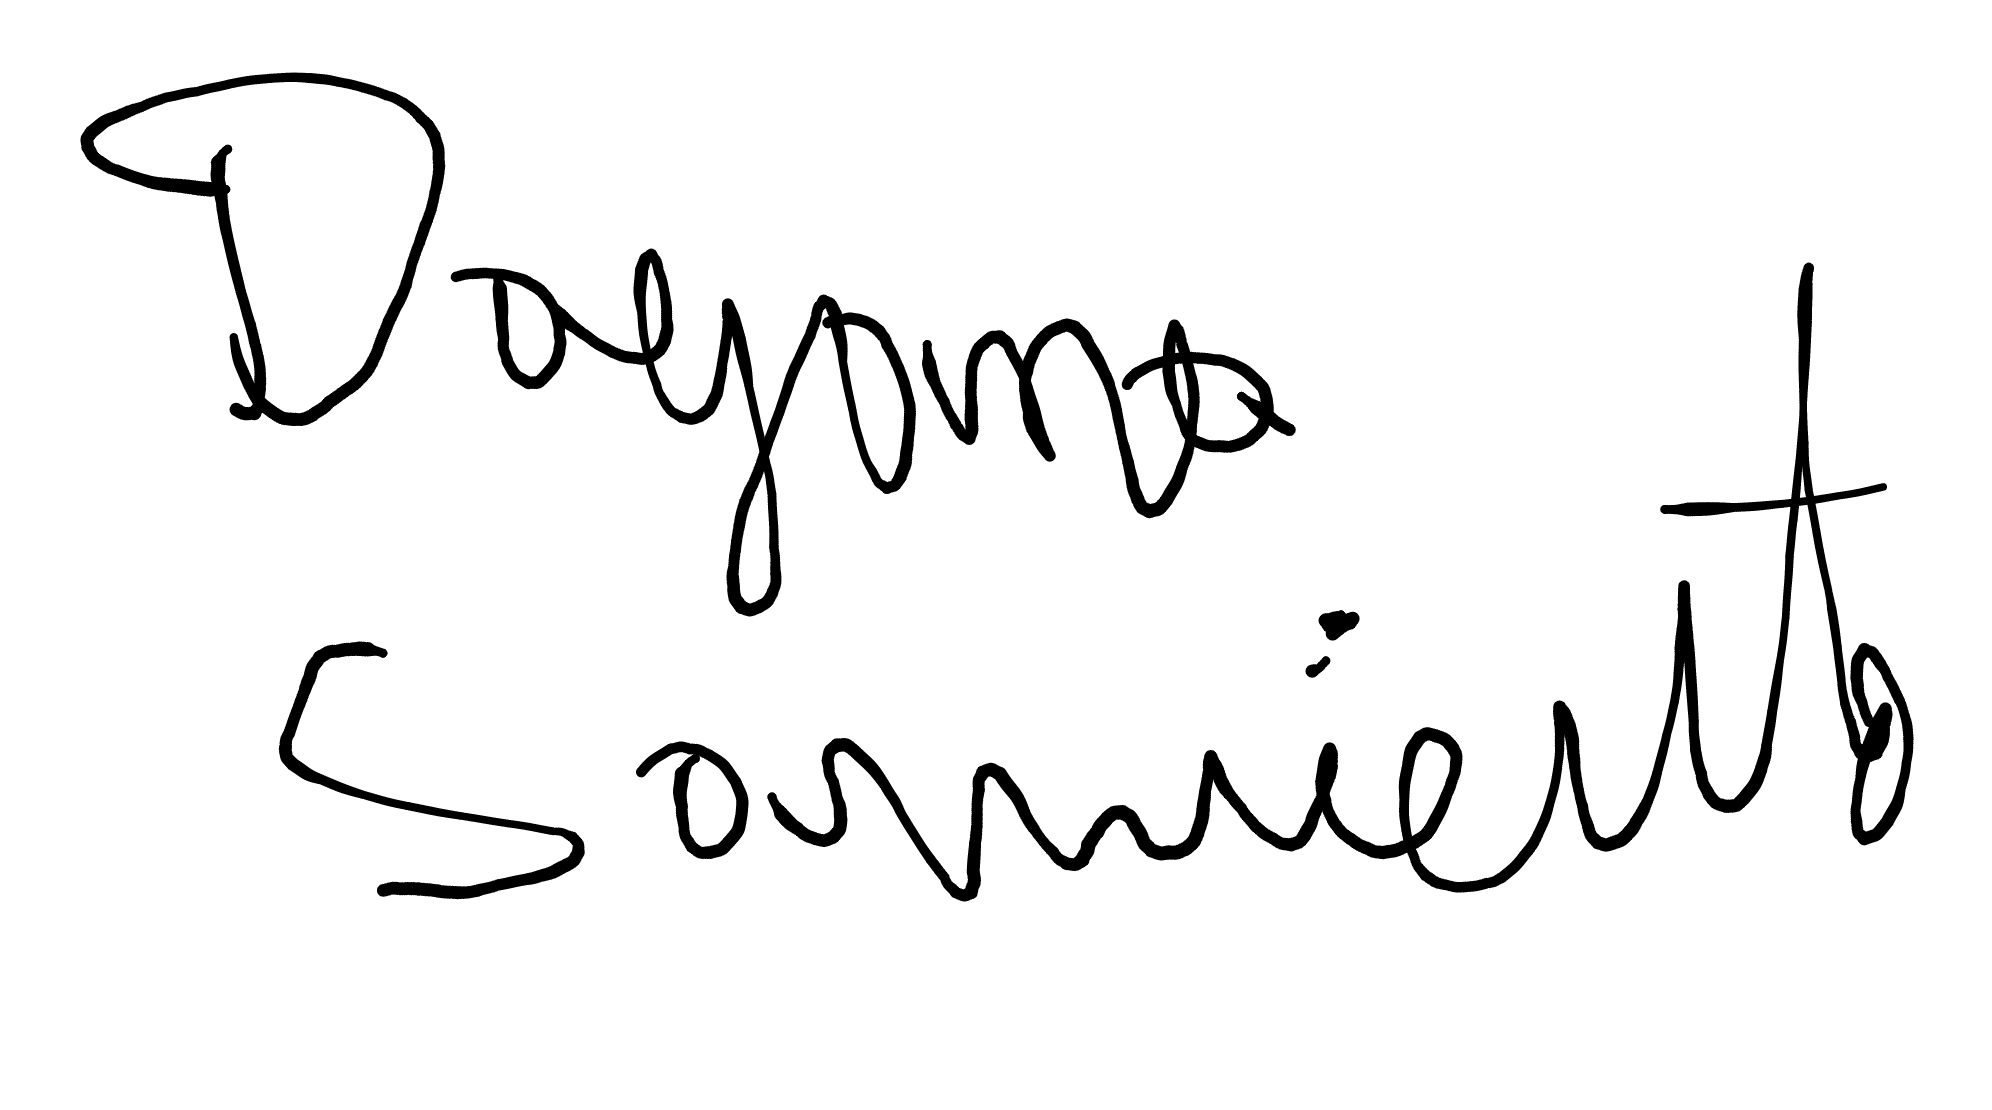 Dayana
Sarmiento